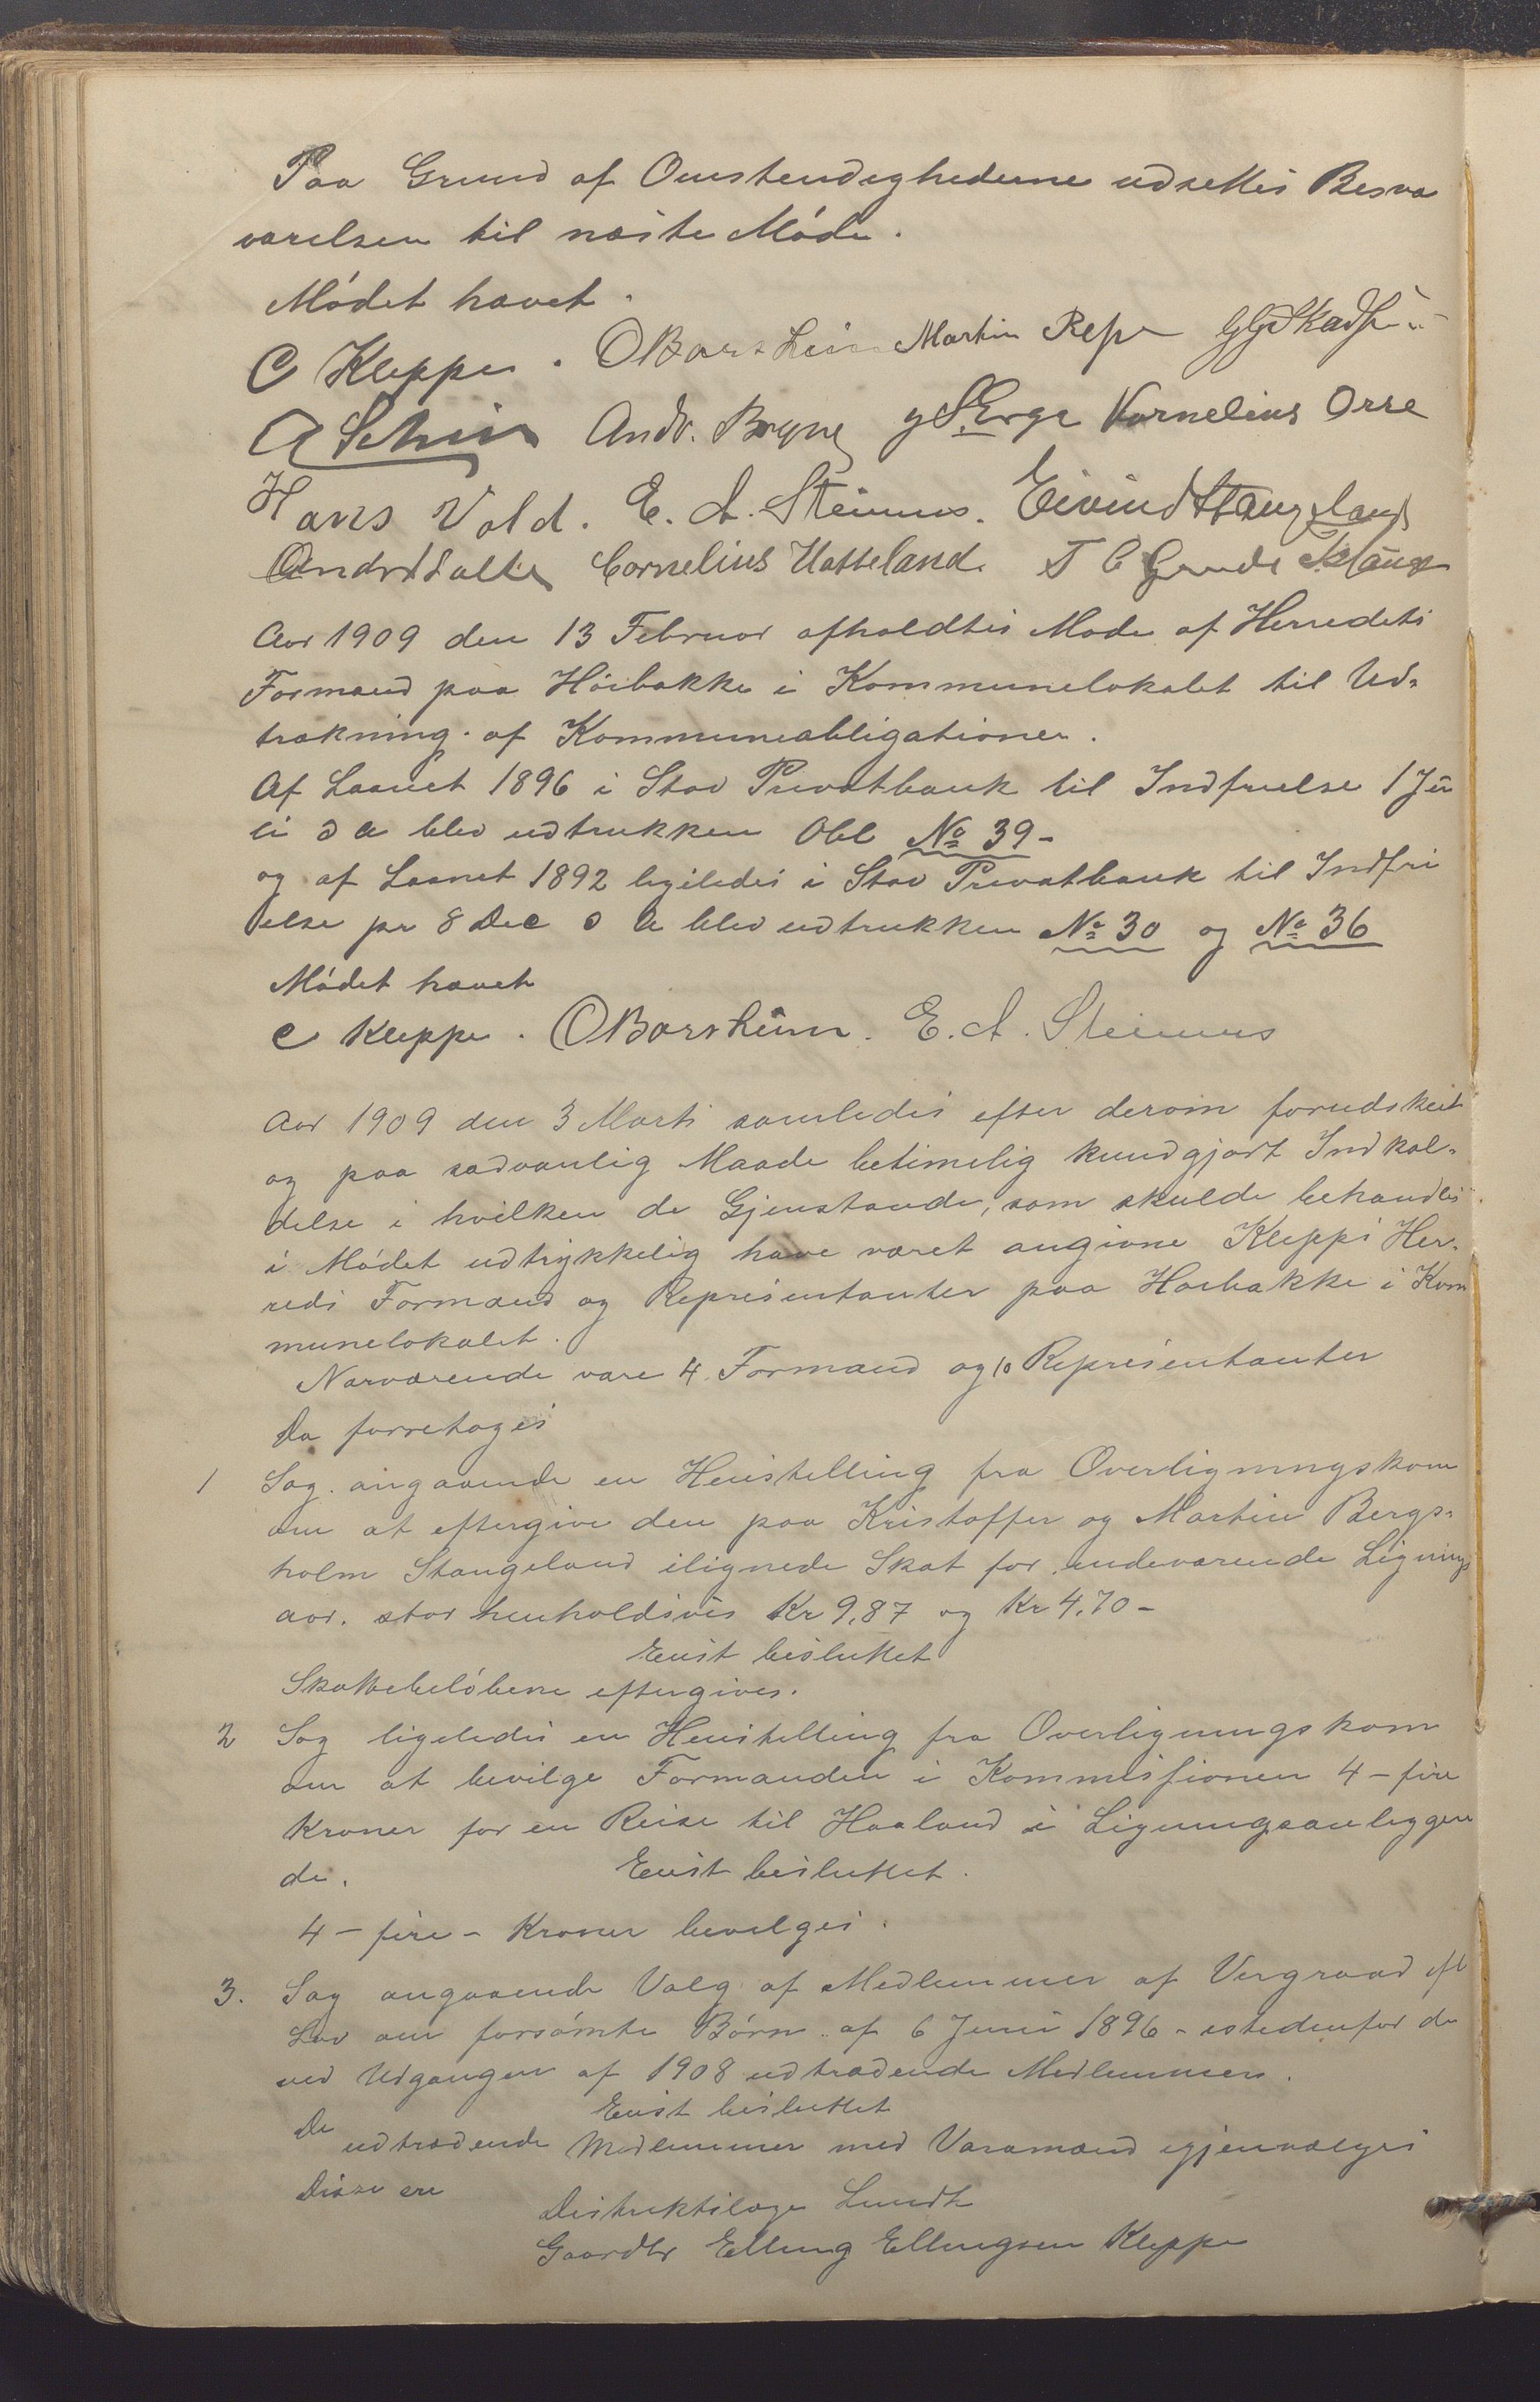 Paa Grund af Omstendighederne udsettes Besva
varelsen til næste Møde.
Mødet hævet.
C Kleppe. O Borsheim Martin Repe
Andr. Bryne Kornelius Orre
Hans Vold. E. A. Steinnes. Eivind Stangeland
Cornelius Hatteland.
Aar 1909 den 13 Februar afholdtes Møde af Herredets
Formænd paa Høibakke i Kommunelokalet til Ud-
trækning af Kommuneobligationer.
Af Laanet 1896 i Stav Privatbank til Indfrielse 1 Ju
li d a blev udtrukken Obl No 39 -
og af Laanet 1892 ligeledes i Stav Privatbank til Indfri
else pr 8 Dec d a blev udtrukken No 30 og No 36
Mødet hævet
C Kleppe. O Borsheim. E. A. Steinnes
Aar 1909 den 3 Marts samledes efter derom forudskeet
og paa sædvanlig Maade betimelig kundgjort Indkal-
delse i hvilken de Gjenstande, som skulde behandles
i Mødet udtrykkelig have været angivne Klepps Her-
reds Formænd og Repræsentanter paa Høibakke i Kom
munelokalet.
Nærværende vare 4 Formænd og 10 Repræsentanter
Da forretoges
1 Sag angaaende en Henstilling fra Overligningskom
om at eftergive den paa Kristoffer og Martin Bergs-
holm Stangeland ilignede Skat for indeværende Lignings
aar. stor henholdsvis Kr 9,87 og Kr 4,70 -
Enst besluttet
Skattebeløbene eftergives.
2 Sag ligeledes en Henstilling fra Overligningskom
om at bevilge Formanden i Kommissionen 4 - fire
Kroner for en Reise til Haaland i Ligningsanliggen
de. Enst besluttet.
4 - fire - Kroner bevilges.
3. Sag angaaende Valg af Medlemmer af Vergraad eft
Lov om forsømte Børn af 6 Juni 1896 - istedenfor de
ved Udgangen af 1908 udtrædende Medlemmer.
Enst besluttet
De udtrædende Medlemmer med Varamænd igjenvælges
Disse ere
Distriktslæge Lundh
Gaardbr Elling Ellingsen Kleppe